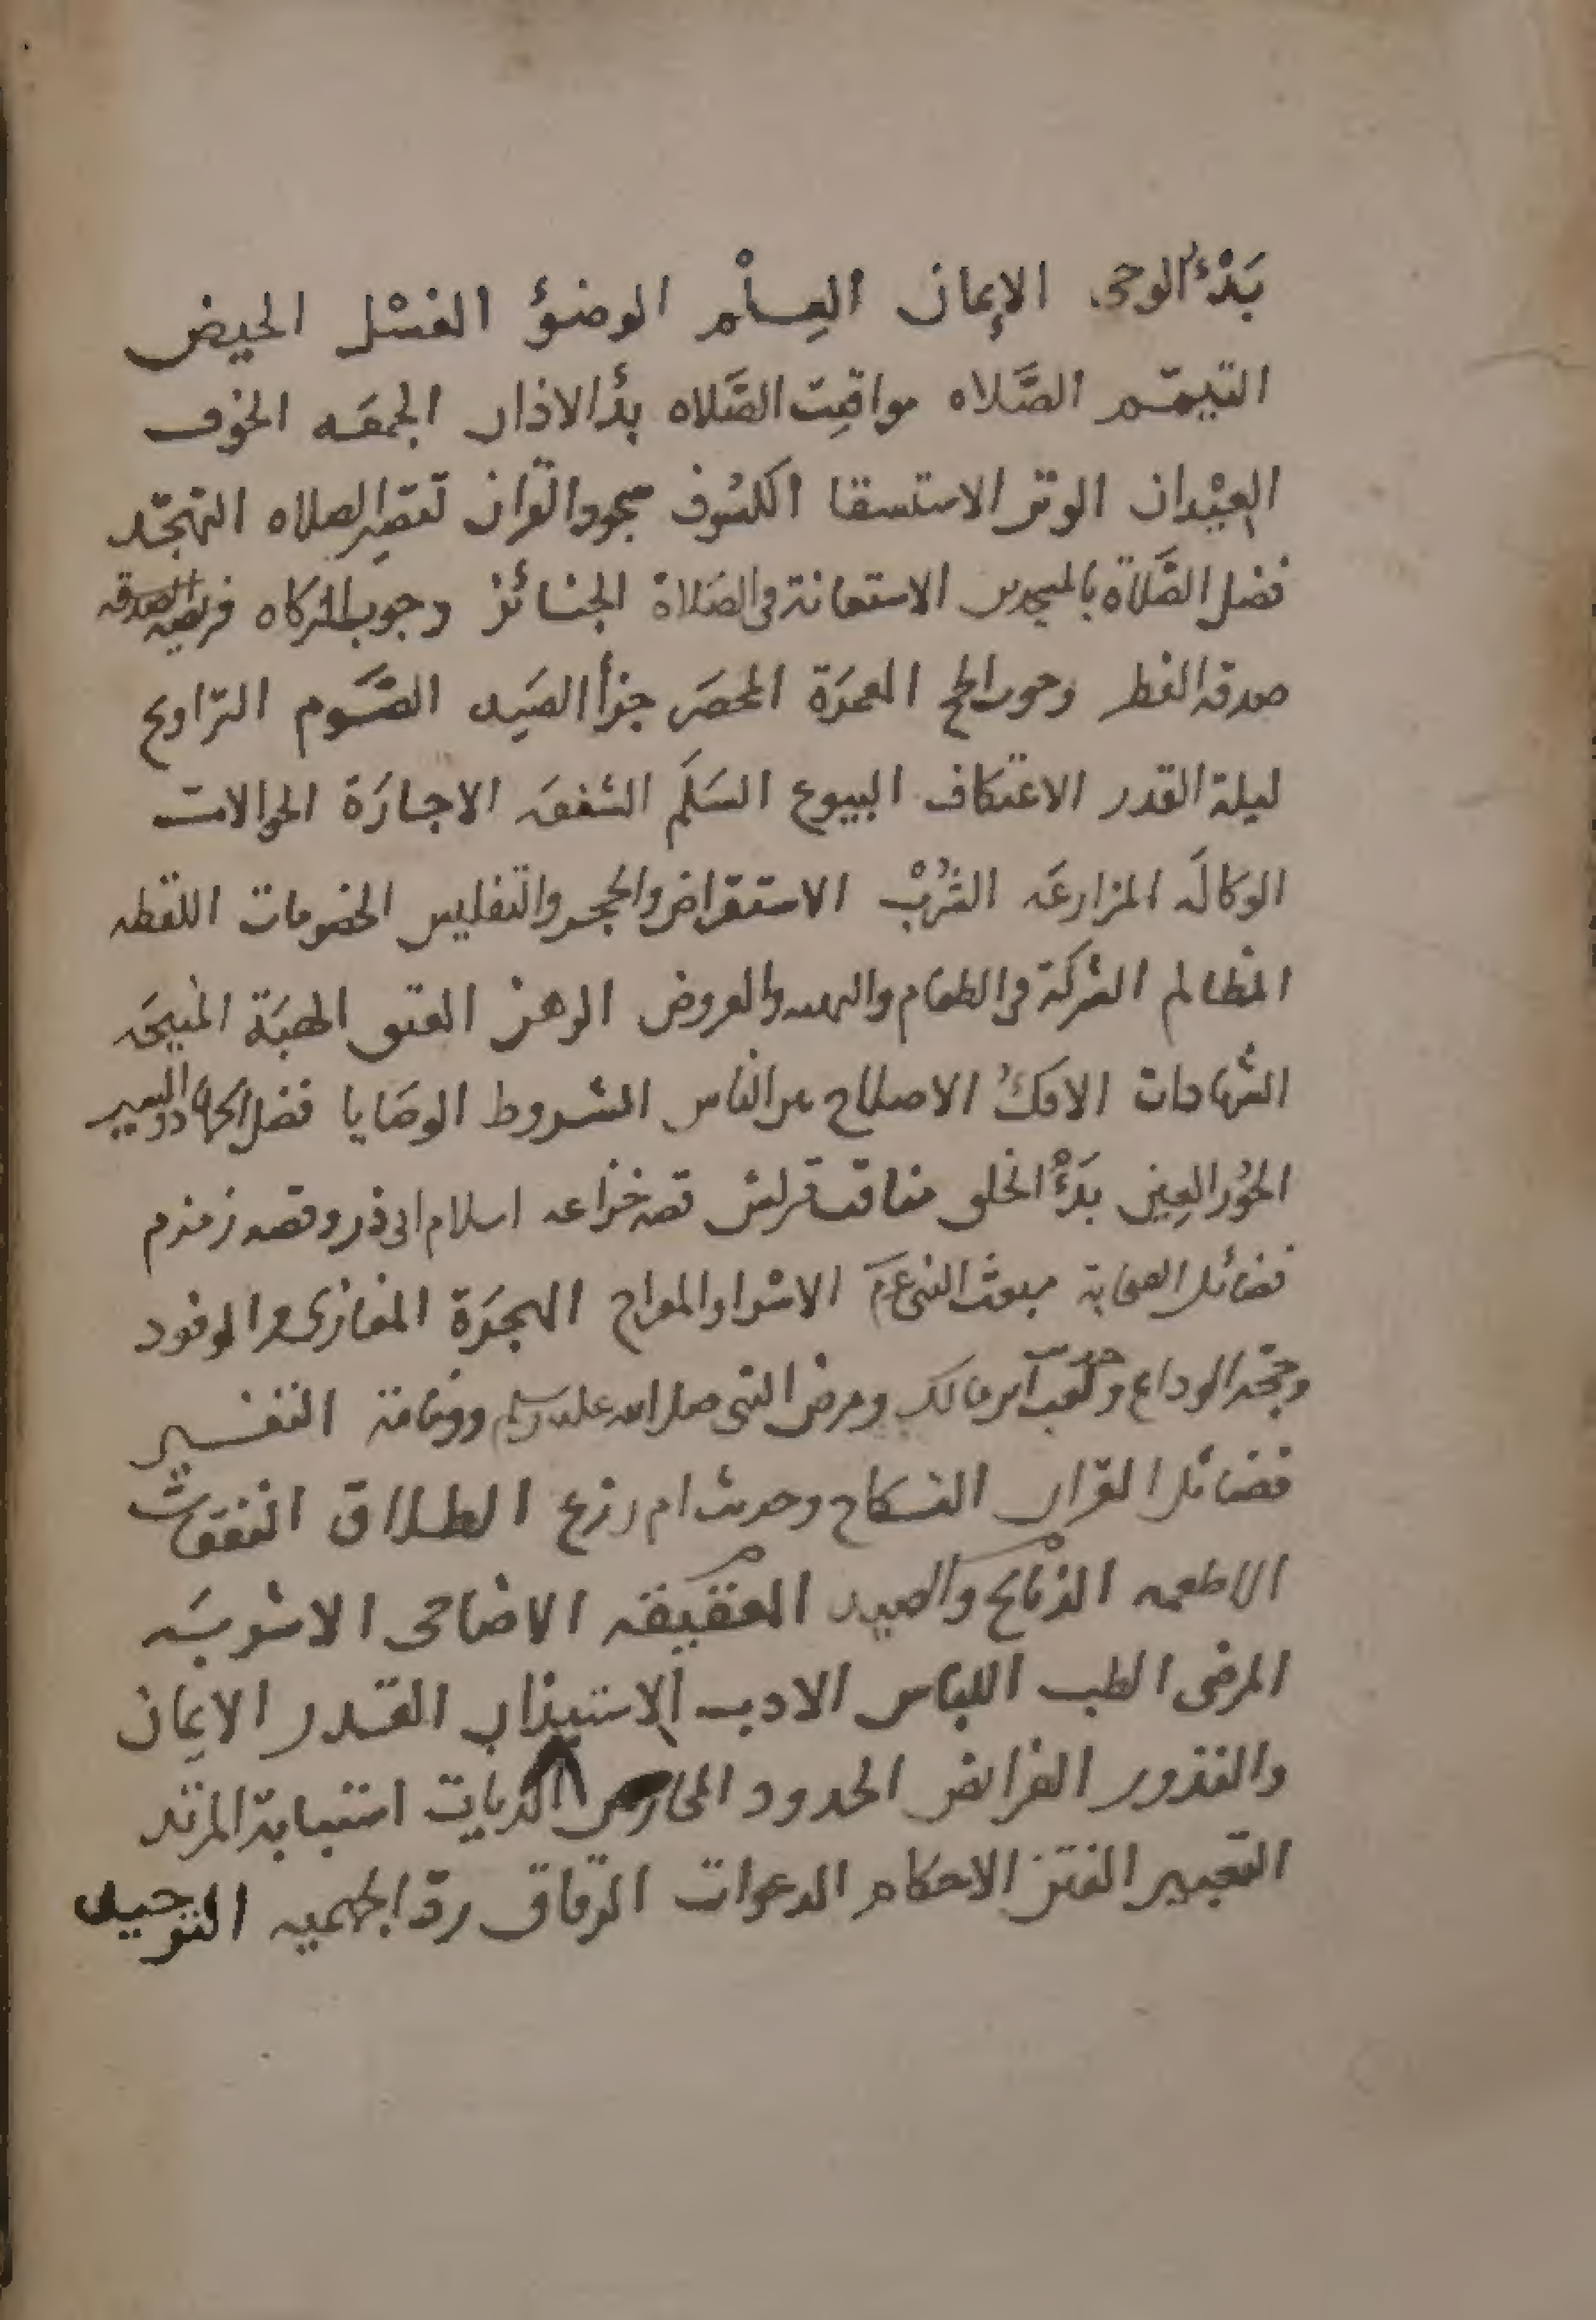 بَدْءُ الوحى الإيمان العِلْم الوضؤُ الغسْل الحيض
التيمّم الصَّلاه مواقِيت الصَّلاه بدأ الاذان الجمعَه الخوف
العِيْدان الوتر الاستسقا الكسُوف سجود القرآن تقصِير الصلاه التهجّد
فضل الصَّلاة بالمسجدين الاستعانة فى الصَلاة الجنائز وجوب الزكاه فريضه الصدقه
صدقه الفطر وجوب الحج العمرَة المحصَر جزأ الصَيد الصَّوم الترّاويح
ليلة القدر الاعتكاف البيوع السَلَم الشفعَه الاجارَة الحوالات
الوكالَه المزارعَه الشُرْبْ الاستقراض والحجر والتفليس الخصومات اللقطه
المظالم الشركة فى الطعام والنهد والعروض الرهن العتق الهبَة المنيحَه
الشهادات الافك الاصلاح بين الناس الشروط الوصَايا فضل الجهاد والسير
الحُور العِين بَدْءُ الخلق مناقب قريش قصه خزاعه اسلام ابى ذر وقصه زمزم
فضائل الصحابة مبعث النبى عم الاسْرا والمعراج الهجرَة المغازى الوفود
وحجّه الوداع كعب ابن مالك ومرض النبى صلى الله عليه وسلم ووفاته التفسير
فضائل القرآن النكاح وحديث ام زرع الطلاق النفقات
الاطعمه الذبائح والصيد العقيقه الاضاحى الاشربَه
المرضى الطب اللباس الادب الاستيذان القدر الايمان
والنذور الفرائض الحدود المحاربين الديات استتابة المرتد
التعبير الفتن الاحكام الدعوات الرقاق ردّ الجهميه التوحيد